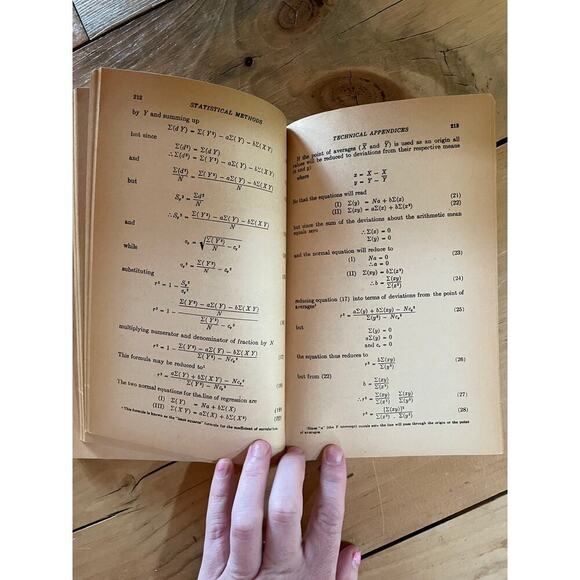 212
STATISTICAL METHODS
by Y and summing up
Σ(d Y) = Σ(Y²) − aΣ(Y) − bΣ(X Y)
but since
Σ(d²) = Σ(d Y)
and
∴Σ(d²) = Σ(Y²) − aΣ(Y) − bΣ(X Y)
Σ(d²)/N = (Σ(Y²) − aΣ(Y) − bΣ(X Y))/N
but
Sy² = Σd²/N
∴Sy² = (Σ(Y²) − aΣ(Y) − bΣ(X Y))/N
and
σy = √(Σ(Y²)/N − cy²)
while
σy² = Σ(Y²)/N − cy²
substituting
r² = 1 − Sy²/σy²
r² = 1 − ((Σ(Y²) − aΣ(Y) − bΣ(X Y))/N)/(Σ(Y²)/N − cy²)
multiplying numerator and denominator of fraction by N
r² = 1 − (Σ(Y²) − aΣ(Y) − bΣ(X Y))/(Σ(Y²) − Ncy²)
This formula may be reduced to¹
r² = (aΣ(Y) + bΣ(X Y) − Ncy²)/(Σ(Y²) − Ncy²)
The two normal equations for the line of regression are
(I) Σ(Y) = Na + bΣ(X)
(III) Σ(X Y) = aΣ(X) + bΣ(X²)
¹ This formula is known as the "least squares" formula for the coefficient of
TECHNICAL APPENDICES
213
If the point of averages (X̄ and Ȳ) is used as an origin all
values will be reduced to deviations from their respective means
(x and y)
where
x = X − X̄
y = Y − Ȳ
So that the equations will read
(I) Σ(y) = Na + bΣ(x) (21)
(II) Σ(xy) = aΣ(x) + bΣ(x²) (22)
but since the sum of the deviations about the arithmetic mean
equals zero ∴Σ(x) = 0
Σ(y) = 0
and the normal equation will reduce to
(I) Na = 0 (23)
∴a = 0
(II) Σ(xy) = bΣ(x²)
∴b = Σ(xy)/Σ(x²) (24)
reducing equation (17) into terms of deviations from the point of
averages¹
r² = (aΣ(y) + bΣ(xy) − Ncy²)/(Σ(y²) − Ncy²) (25)
but
Σ(y) = 0
aΣ(y) = 0
and cy = 0
the equation thus reduces to
r² = bΣ(xy)/Σ(y²) (26)
but from (22)
b = Σ(xy)/Σ(x²)
r² = Σ(xy)/Σ(x²) · Σ(xy)/Σ(y²) (27)
r² = [Σ(xy)]²/(Σ(x²) · Σ(y²)) (28)
¹Since "a" (the Y intercept) equals zero the line will pass through the origin or the point
of averages.